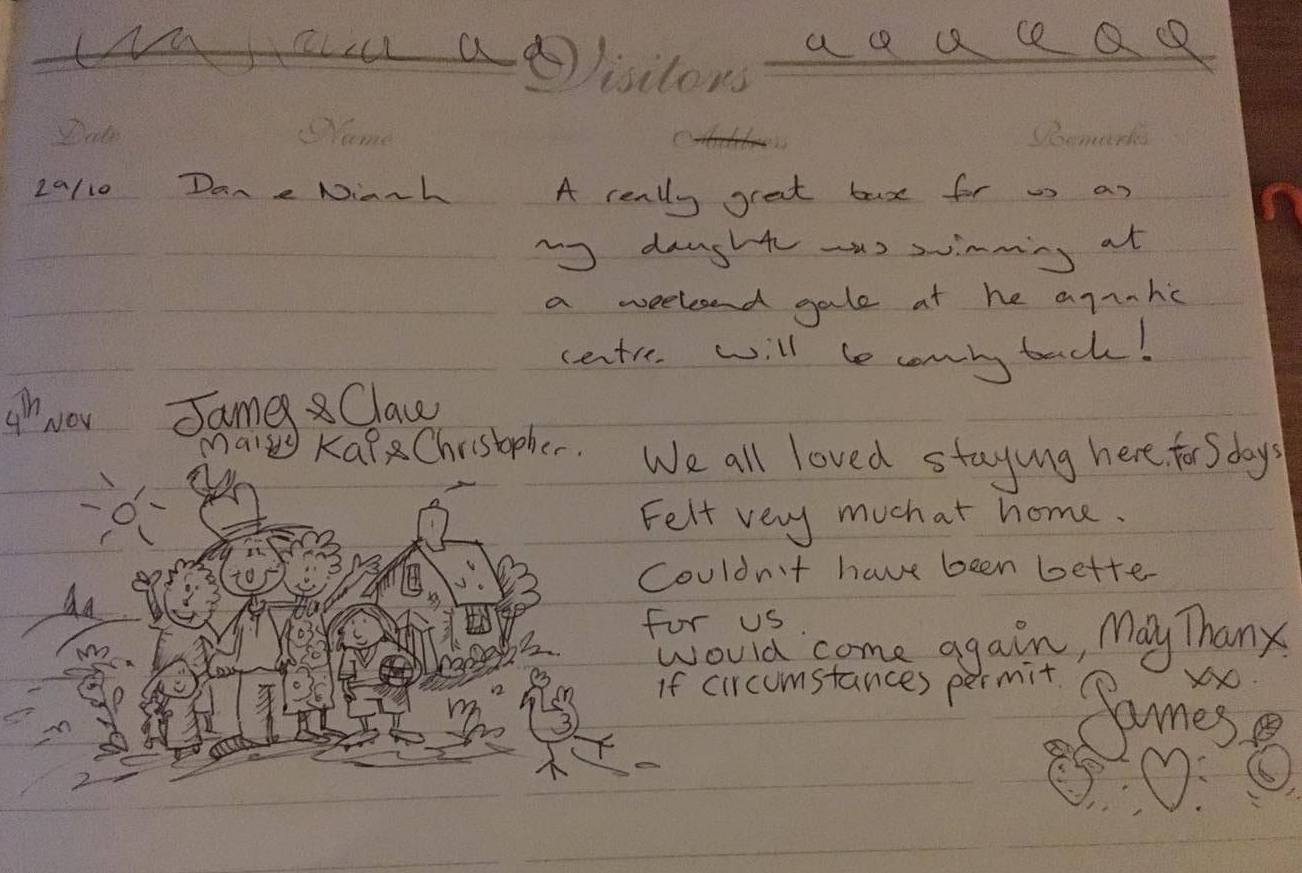 Visitors
Date Name Address Remarks
29/10 Dan & Niamh A really great base for us as
my daughter was swimming at
a weekend gala at the aquatic
centre. Will be coming back!
4th Nov James & Claire
Maisye Kai & Christopher.
We all loved staying here. for 5 days
Felt very much at home.
Couldn't have been better
for us.
Would come again, Many Thanx
if circumstances permit. xxx.
James